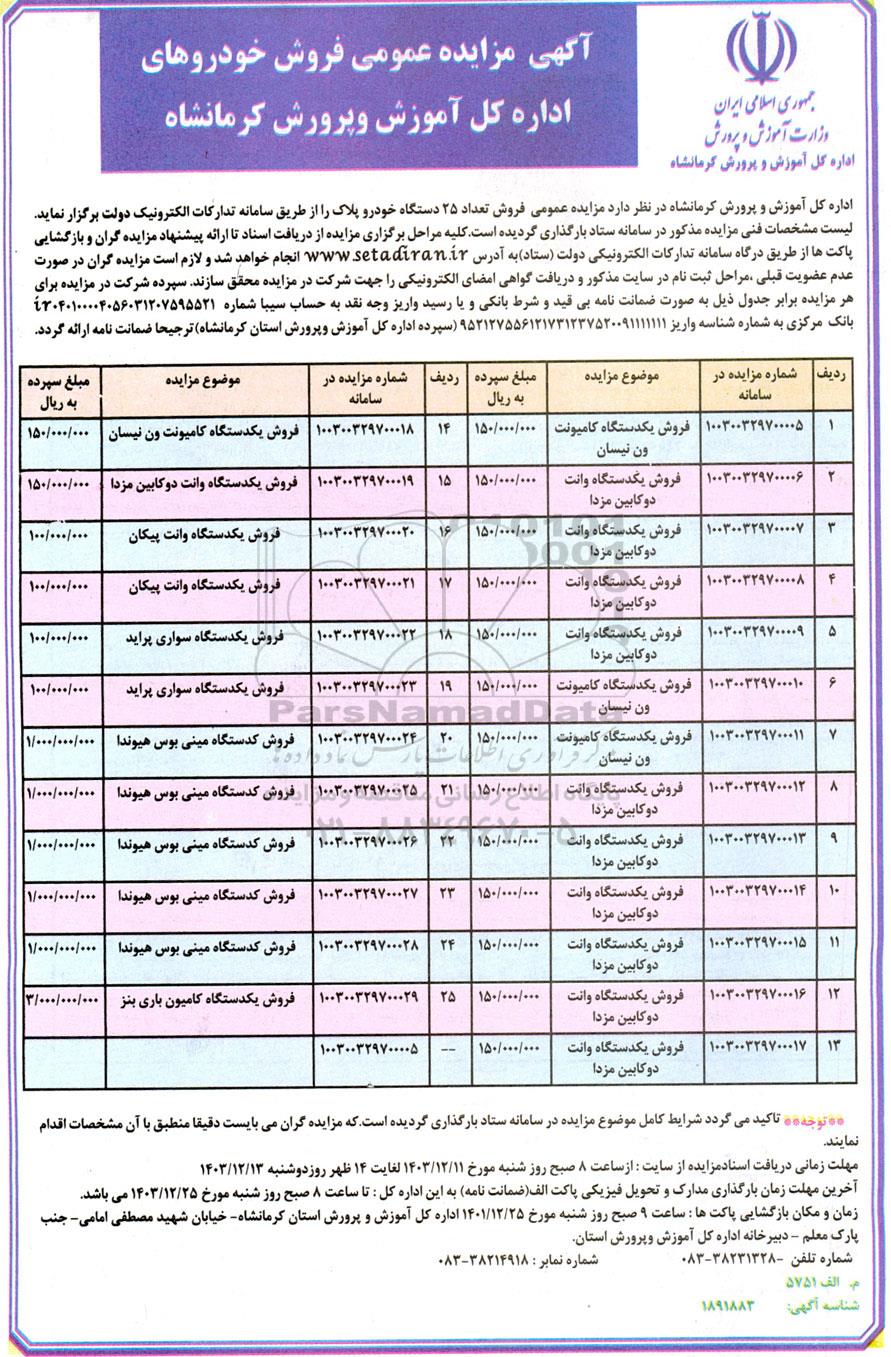 آگهی مزایده عمومی فروش خودروهای
اداره کل آموزش وپرورش کرمانشاه
جمهوری اسلامی ایران
وزارت آموزش و پرورش
اداره کل آموزش و پرورش کرمانشاه
اداره کل آموزش و پرورش کرمانشاه در نظر دارد مزایده عمومی فروش تعداد ۲۵ دستگاه خودرو پلاک را از طریق سامانه تدارکات الکترونیک دولت برگزار نماید.
لیست مشخصات فنی مزایده مذکور در سامانه ستاد بارگذاری گردیده است.کلیه مراحل برگزاری مزایده از دریافت اسناد تا ارائه پیشنهاد مزایده گران و بازگشایی
پاکت ها از طریق درگاه سامانه تدارکات الکترونیکی دولت (ستاد)به آدرس www.setadiran.ir انجام خواهد شد و لازم است مزایده گران در صورت
عدم عضویت قبلی ،مراحل ثبت نام در سایت مذکور و دریافت گواهی امضای الکترونیکی را جهت شرکت در مزایده محقق سازند. سپرده شرکت در مزایده برای
هر مزایده برابر جدول ذیل به صورت ضمانت نامه بی قید و شرط بانکی و یا رسید واریز وجه نقد به حساب سیبا شماره ir۰۴۰۱۰۰۰۰۴۰۵۶۰۳۱۲۰۷۵۹۵۵۲۱
بانک مرکزی به شماره شناسه واریز ۹۵۲۱۲۷۵۵۶۱۲۱۷۳۱۲۳۷۵۲۰۰۹۱۱۱۱۱۱۱ (سپرده اداره کل آموزش وپرورش استان کرمانشاه)ترجیحا ضمانت نامه ارائه گردد.
ردیف شماره مزایده در سامانه موضوع مزایده مبلغ سپرده به ریال ردیف شماره مزایده در سامانه موضوع مزایده مبلغ سپرده به ریال
۱ ۱۰۰۳۰۰۳۲۹۷۰۰۰۰۵ فروش یکدستگاه کامیونت ون نیسان ۱۵۰/۰۰۰/۰۰۰ ۱۴ ۱۰۰۳۰۰۳۲۹۷۰۰۰۱۸ فروش یکدستگاه کامیونت ون نیسان ۱۵۰/۰۰۰/۰۰۰
۲ ۱۰۰۳۰۰۳۲۹۷۰۰۰۰۶ فروش یکدستگاه وانت دوکابین مزدا ۱۵۰/۰۰۰/۰۰۰ ۱۵ ۱۰۰۳۰۰۳۲۹۷۰۰۰۱۹ فروش یکدستگاه وانت دوکابین مزدا ۱۵۰/۰۰۰/۰۰۰
۳ ۱۰۰۳۰۰۳۲۹۷۰۰۰۰۷ فروش یکدستگاه وانت دوکابین مزدا ۱۵۰/۰۰۰/۰۰۰ ۱۶ ۱۰۰۳۰۰۳۲۹۷۰۰۰۲۰ فروش یکدستگاه وانت پیکان ۱۰۰/۰۰۰/۰۰۰
۴ ۱۰۰۳۰۰۳۲۹۷۰۰۰۰۸ فروش یکدستگاه وانت دوکابین مزدا ۱۵۰/۰۰۰/۰۰۰ ۱۷ ۱۰۰۳۰۰۳۲۹۷۰۰۰۲۱ فروش یکدستگاه وانت پیکان ۱۰۰/۰۰۰/۰۰۰
۵ ۱۰۰۳۰۰۳۲۹۷۰۰۰۰۹ فروش یکدستگاه وانت دوکابین مزدا ۱۵۰/۰۰۰/۰۰۰ ۱۸ ۱۰۰۳۰۰۳۲۹۷۰۰۰۲۲ فروش یکدستگاه سواری پراید ۱۰۰/۰۰۰/۰۰۰
۶ ۱۰۰۳۰۰۳۲۹۷۰۰۰۱۰ فروش یکدستگاه کامیونت ون نیسان ۱۵۰/۰۰۰/۰۰۰ ۱۹ ۱۰۰۳۰۰۳۲۹۷۰۰۰۲۳ فروش یکدستگاه سواری پراید ۱۰۰/۰۰۰/۰۰۰
۷ ۱۰۰۳۰۰۳۲۹۷۰۰۰۱۱ فروش یکدستگاه کامیونت ون نیسان ۱۵۰/۰۰۰/۰۰۰ ۲۰ ۱۰۰۳۰۰۳۲۹۷۰۰۰۲۴ فروش کدستگاه مینی بوس هیوندا ۱/۰۰۰/۰۰۰/۰۰۰
۸ ۱۰۰۳۰۰۳۲۹۷۰۰۰۱۲ فروش یکدستگاه وانت دوکابین مزدا ۱۵۰/۰۰۰/۰۰۰ ۲۱ ۱۰۰۳۰۰۳۲۹۷۰۰۰۲۵ فروش کدستگاه مینی بوس هیوندا ۱/۰۰۰/۰۰۰/۰۰۰
۹ ۱۰۰۳۰۰۳۲۹۷۰۰۰۱۳ فروش یکدستگاه وانت دوکابین مزدا ۱۵۰/۰۰۰/۰۰۰ ۲۲ ۱۰۰۳۰۰۳۲۹۷۰۰۰۲۶ فروش کدستگاه مینی بوس هیوندا ۱/۰۰۰/۰۰۰/۰۰۰
۱۰ ۱۰۰۳۰۰۳۲۹۷۰۰۰۱۴ فروش یکدستگاه وانت دوکابین مزدا ۱۵۰/۰۰۰/۰۰۰ ۲۳ ۱۰۰۳۰۰۳۲۹۷۰۰۰۲۷ فروش کدستگاه مینی بوس هیوندا ۱/۰۰۰/۰۰۰/۰۰۰
۱۱ ۱۰۰۳۰۰۳۲۹۷۰۰۰۱۵ فروش یکدستگاه وانت دوکابین مزدا ۱۵۰/۰۰۰/۰۰۰ ۲۴ ۱۰۰۳۰۰۳۲۹۷۰۰۰۲۸ فروش کدستگاه مینی بوس هیوندا ۱/۰۰۰/۰۰۰/۰۰۰
۱۲ ۱۰۰۳۰۰۳۲۹۷۰۰۰۱۶ فروش یکدستگاه وانت دوکابین مزدا ۱۵۰/۰۰۰/۰۰۰ ۲۵ ۱۰۰۳۰۰۳۲۹۷۰۰۰۲۹ فروش یکدستگاه کامیون باری بنز ۳/۰۰۰/۰۰۰/۰۰۰
۱۳ ۱۰۰۳۰۰۳۲۹۷۰۰۰۱۷ فروش یکدستگاه وانت دوکابین مزدا ۱۵۰/۰۰۰/۰۰۰ -- ۱۰۰۳۰۰۳۲۹۷۰۰۰۰۵
ParsNamadData
مرکز فرآوری اطلاعات پارس نماد داده ها
پایگاه اطلاع رسانی مناقصه و مزایده
۰۲۱-۸۸۳۴۹۶۷۰-۵
**توجه** تاکید می گردد شرایط کامل موضوع مزایده در سامانه ستاد بارگذاری گردیده است.که مزایده گران می بایست دقیقا منطبق با آن مشخصات اقدام
نمایند.
مهلت زمانی دریافت اسنادمزایده از سایت : ازساعت ۸ صبح روز شنبه مورخ ۱۴۰۳/۱۲/۱۱ لغایت ۱۴ ظهر روزدوشنبه ۱۴۰۳/۱۲/۱۳
آخرین مهلت زمان بارگذاری مدارک و تحویل فیزیکی پاکت الف(ضمانت نامه) به این اداره کل : تا ساعت ۸ صبح روز شنبه مورخ ۱۴۰۳/۱۲/۲۵ می باشد.
زمان و مکان بازگشایی پاکت ها : ساعت ۹ صبح روز شنبه مورخ ۱۴۰۱/۱۲/۲۵ اداره کل آموزش و پرورش استان کرمانشاه- خیابان شهید مصطفی امامی- جنب
پارک معلم - دبیرخانه اداره کل آموزش وپرورش استان.
شماره تلفن -۰۸۳-۳۸۲۳۱۳۲۸ شماره نمابر : ۰۸۳-۳۸۲۱۴۹۱۸
م. الف ۵۷۵۱
شناسه آگهی: ۱۸۹۱۸۸۳